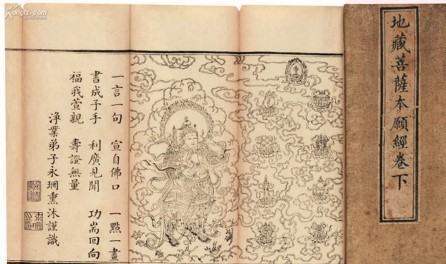 地藏菩薩本願經卷下
一言一句 宣自佛口 一點一畫
書成予手 利廣見聞 功耑回向
福我萱親 壽證無量
淨業弟子永瑆熏沐謹識